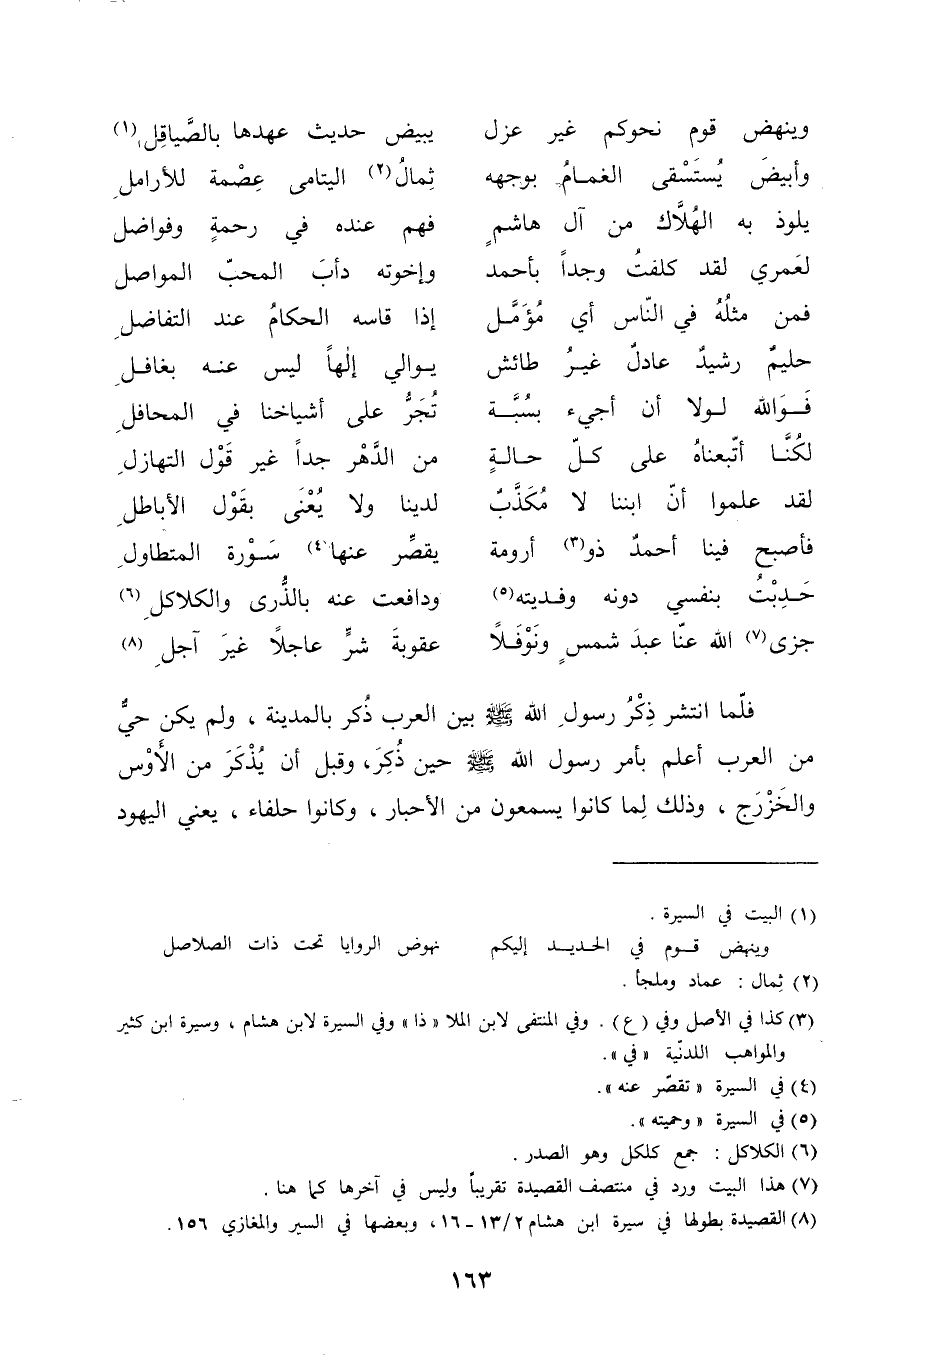 وينهض قوم نحوكم غير عزل ببيض حديث عهدها بالصَّياقلِ(١)
وأبيضَ يُستَسْقى الغمامُ بوجهه ثِمالُ(٢) اليتامى عِصْمة للأراملِ
يلوذ به الهُلَّاك من آل هاشمٍ فهم عنده في رحمةٍ وفواضل
لعَمري لقد كلفتُ وجداً بأحمد وإخوته دأبَ المحبّ المواصل
فمن مثلُهُ في النّاس أي مُؤَمَّل إذا قاسه الحكامُ عند التفاضلِ
حليمٌ رشيدٌ عادلٌ غيرُ طائش يوالي إلهاً ليس عنه بغافلِ
فَوَالله لولا أن أجيء بسُبَّة تُجَرُّ على أشياخنا في المحافلِ
لكُنَّا أتّبعناهُ على كلّ حالةٍ من الدَّهْر جداً غير قَوْل التهازلِ
لقد علموا أنّ ابننا لا مُكَذَّبٌ لدينا ولا يُعْنَى بقَوْل الأباطلِ
فأصبح فينا أحمدٌ ذو(٣) أرومة يقصِّر عنها(٤) سَوْرة المتطاولِ
حَدِبْتُ بنفسي دونه وفديته(٥) ودافعت عنه بالذُّرى والكلاكلِ(٦)
جزى(٧) الله عنّا عبدَ شمسٍ ونَوْفَلاً عقوبةَ شرٍّ عاجلاً غيرَ آجلِ(٨)
فلّما انتشر ذِكْرُ رسولِ الله ﷺ بين العرب ذُكر بالمدينة ، ولم يكن حيٌّ
من العرب أعلم بأمر رسول الله ﷺ حين ذُكِرَ، وقبل أن يُذْكَرَ من الأَوْس
والخَزْرَج ، وذلك لِما كانوا يسمعون من الأحبار ، وكانوا حلفاء ، يعني اليهود
(١) البيت في السيرة .
وينهض قوم في الحديد إليكم نهوض الروايا تحت ذات الصلاصل
(٢) ثِمال : عماد وملجأ .
(٣) كذا في الأصل وفي (ع) . وفي المنتقى لابن الملا « ذا » وفي السيرة لابن هشام ، وسيرة ابن كثير
والمواهب اللدنّية « في ».
(٤) في السيرة « تقصّر عنه ».
(٥) في السيرة « وحميته ».
(٦) الكلاكل : جمع كلكل وهو الصدر .
(٧) هذا البيت ورد في منتصف القصيدة تقريباً وليس في آخرها كما هنا .
(٨) القصيدة بطولها في سيرة ابن هشام ٢/١٣ - ١٦، وبعضها في السير والمغازي ١٥٦ .
١٦٣